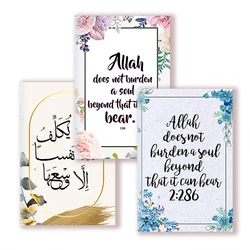 Allah
does not burden
a soul
beyond that it
bear.
نفسا
إلا وسعها
Allah
does not
burden a soul
beyond
that it can bear
2:286